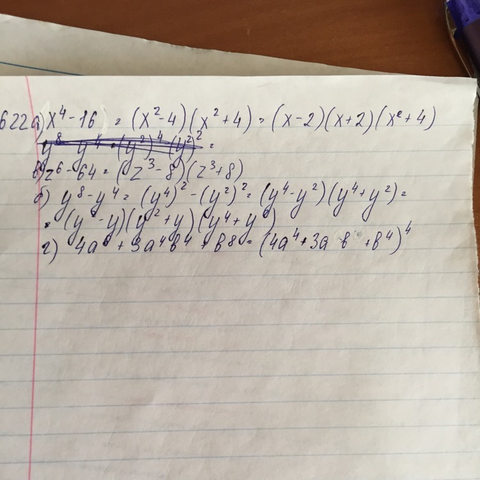 622 а) x⁴ - 16 = (x² - 4)(x² + 4) = (x - 2)(x + 2)(x² + 4)
y⁸ y⁴ = (y²)⁴ (y²)² =
в) z⁶ - 64 = (z³ - 8)(z³ + 8)
б) y⁸ - y⁴ = (y⁴)² - (y²)² = (y⁴ - y²)(y⁴ + y²) =
= (y - y)(y² + y)(y⁴ + y²)
г) 4a + 3a⁴b⁴ + b8 = (4a⁴ + 3a b + b⁴)⁴